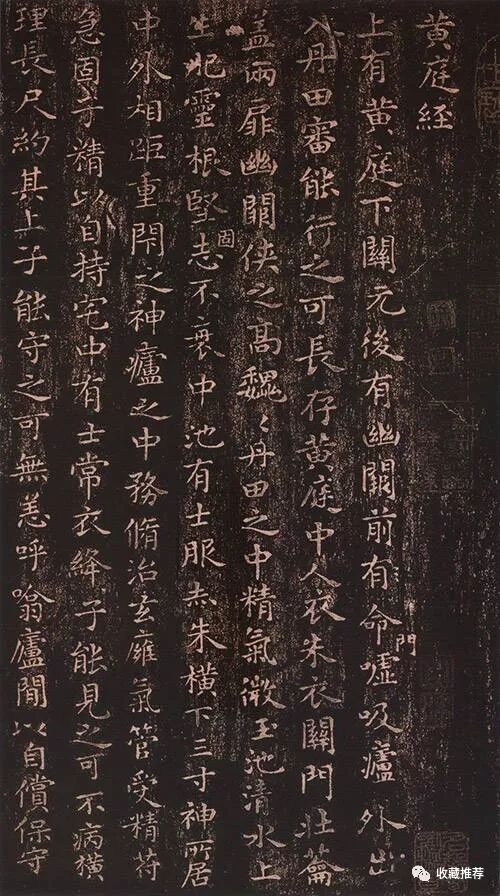 黄庭經
上有黄庭下關元後有幽闕前有命門嘘吸廬外出
入丹田審能行之可長存黄庭中人衣朱衣關門壯蘥
盖兩扉幽闕侠之高巍〻丹田之中精氣微玉池清水上
生肥靈根堅固志不衰中池有士服赤朱横下三寸神所居
中外相距重閇之神廬之中務脩治玄廱氣管受精符
急固子精以自持宅中有士常衣絳子能見之可不病横
理長尺約其上子能守之可無恙呼噏廬閒以自償保守
收藏推荐